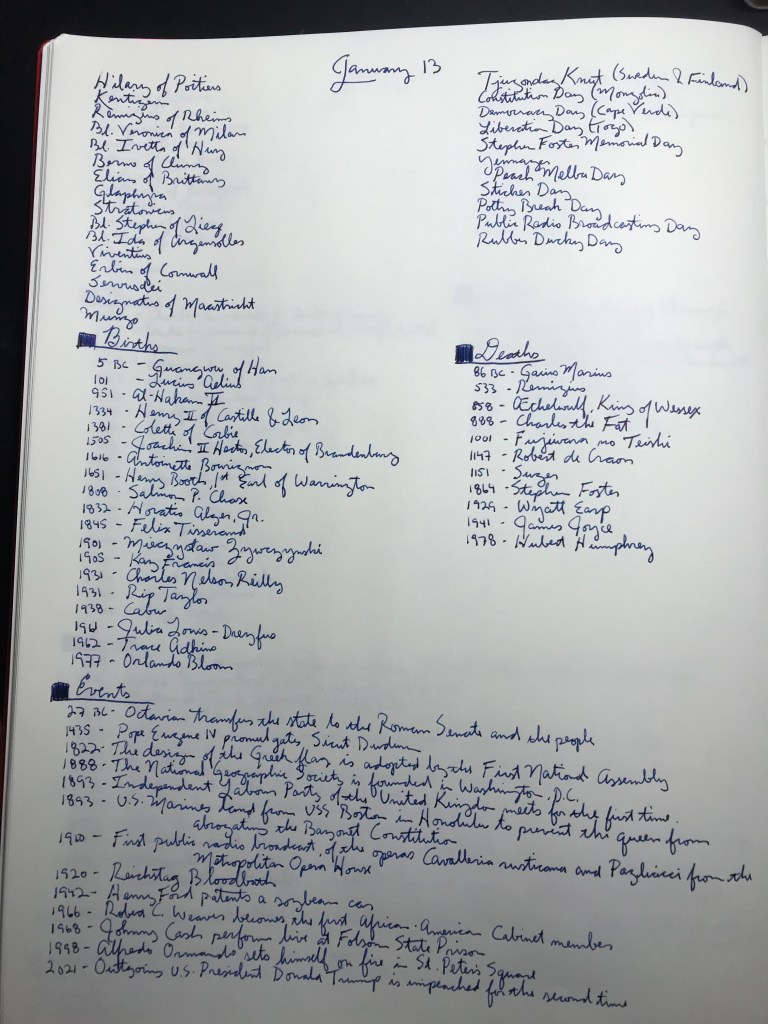 January 13
Hilary of Poitiers
Kentigern
Remigius of Rheims
Bl. Veronica of Milan
Bl. Ivetta of Huy
Berno of Cluny
Elian of Brittany
Glaphyra
Stratonicus
Bl. Stephen of Liege
Bl. Ida of Argensolles
Viventius
Erbin of Cornwall
Servusdei
Designatus of Maastricht
Mungo
Tjugondag Knut (Sweden & Finland)
Constitution Day (Mongolia)
Democracy Day (Cape Verde)
Liberation Day (Togo)
Stephen Foster Memorial Day
Yennayer
Peach Melba Day
Sticker Day
Potty Break Day
Public Radio Broadcasting Day
Rubber Ducky Day
Births
5 BC - Guangwu of Han
101 - Lucius Aelius
951 - Al-Hakam II
1334 - Henry II of Castille & Leon
1381 - Colette of Corbie
1505 - Joachim II Hector, Elector of Brandenburg
1616 - Antoinette Bourignon
1651 - Henry Booth, 1st Earl of Warrington
1808 - Salmon P. Chase
1832 - Horatio Alger, Jr.
1845 - Felix Tisserand
1901 - Mieczysław Żywczyński
1905 - Kay Francis
1931 - Charles Nelson Reilly
1931 - Rip Taylor
1938 - Cabu
1961 - Julia Louis-Dreyfus
1962 - Trace Adkins
1977 - Orlando Bloom
Deaths
86 BC - Gaius Marius
533 - Remigius
858 - Æthelwulf, King of Wessex
888 - Charles the Fat
1001 - Fujiwara no Teishi
1147 - Robert de Craon
1151 - Suger
1864 - Stephen Foster
1929 - Wyatt Earp
1941 - James Joyce
1978 - Hubert Humphrey
Events
27 BC - Octavian transfers the state to the Roman Senate and the people
1435 - Pope Eugene IV promulgates Sicut Dudum
1822 - The design of the Greek flag is adopted by the First National Assembly
1888 - The National Geographic Society is founded in Washington, D.C.
1893 - Independent Labour Party of the United Kingdom meets for the first time.
1893 - U.S. Marines land from USS Boston in Honolulu to prevent the queen from
abrogating the Bayonet Constitution
1910 - First public radio broadcast of the operas Cavalleria rusticana and Pagliacci from the
Metropolitan Opera House
1920 - Reichstag Bloodbath
1942 - Henry Ford patents a soybean car
1966 - Robert C. Weaver becomes the first African-American Cabinet member
1968 - Johnny Cash perform live at Folsom State Prison
1998 - Alfredo Ormando sets himself on fire in St. Peter's Square
2021 - Outgoing U.S. President Donald Trump is impeached for the second time